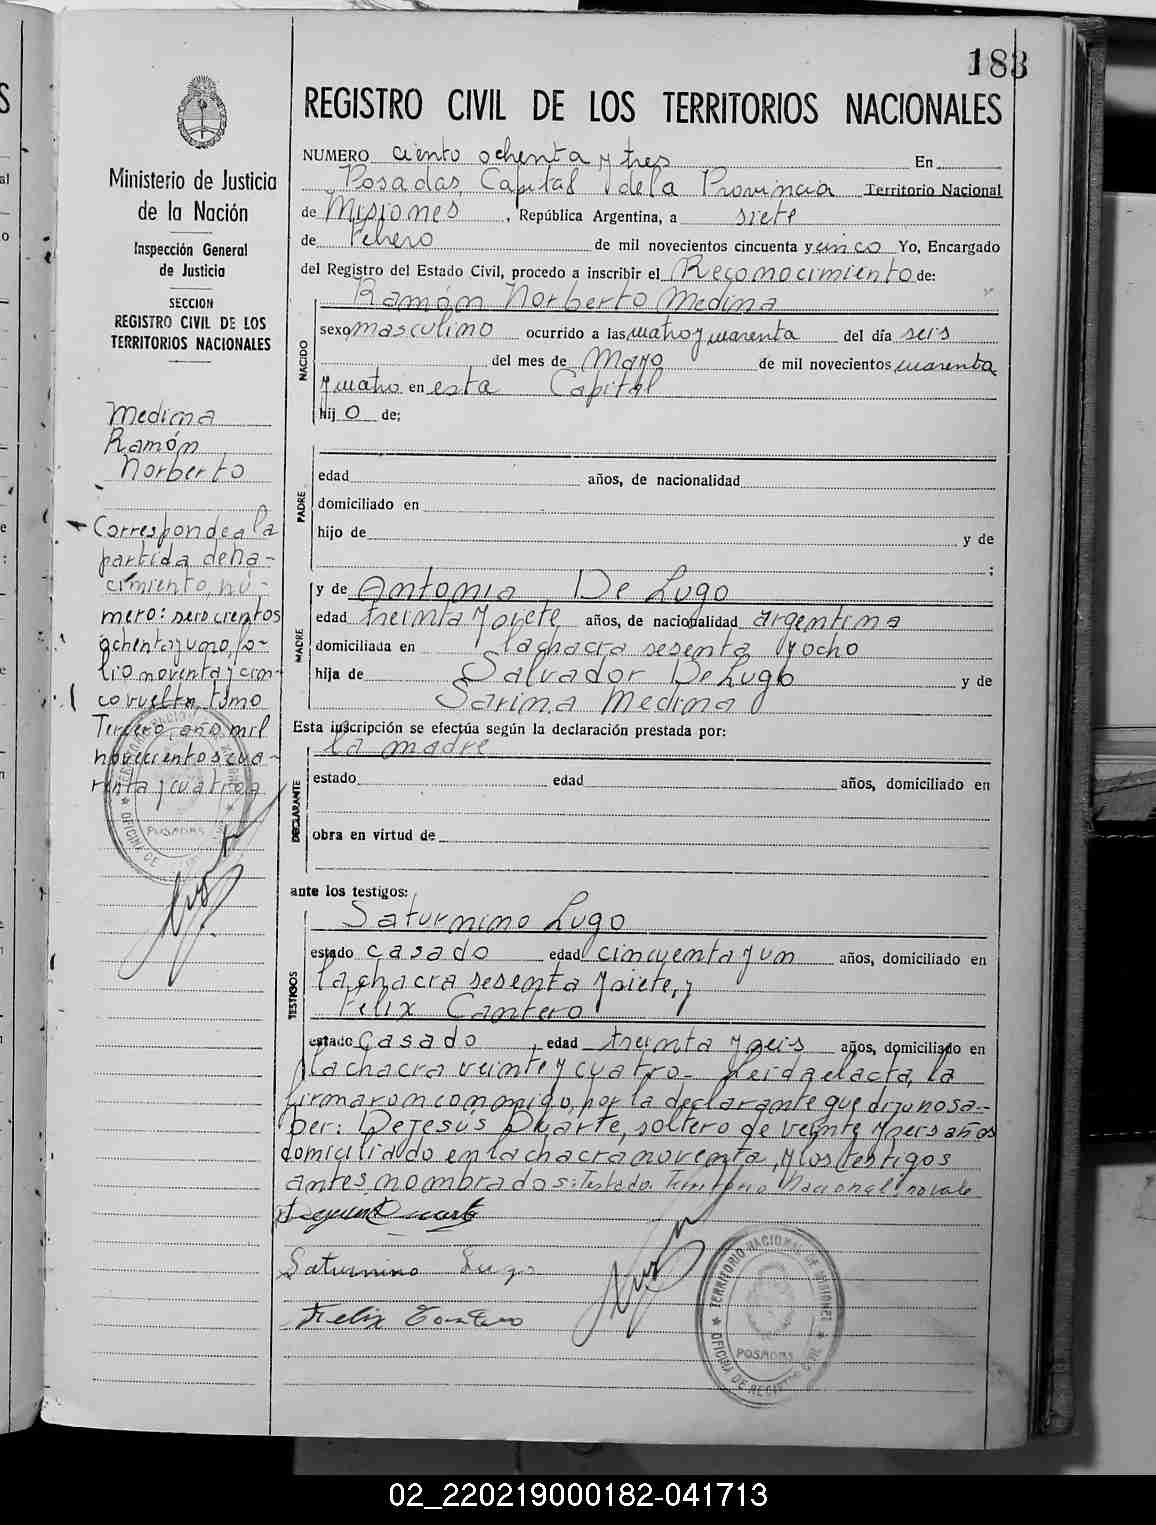 183
REGISTRO CIVIL DE LOS TERRITORIOS NACIONALES
Ministerio de Justicia
de la Nación
Inspección General
de Justicia
SECCION
REGISTRO CIVIL DE LOS
TERRITORIOS NACIONALES
Medina
Ramón
Norberto
Corresponde a la
partida de na-
cimiento, nú-
mero: seiscientos
ochenta y uno, fo-
lio noventa y cin-
co vuelta, tomo
Tercero, año mil
novecientos cua-
renta y cuatro
NUMERO ciento ochenta y tres En
Posadas, Capital de la Provincia Territorio Nacional
de Misiones, República Argentina, a siete
de Febrero de mil novecientos cincuenta y cinco Yo, Encargado
del Registro del Estado Civil, procedo a inscribir el Reconocimiento de:
Ramón Norberto Medina
NACIDO
sexo masculino ocurrido a las cuatro y cuarenta del día seis
del mes de Mayo de mil novecientos cuarenta
y cuatro en esta Capital
hijo de;
PADRE
edad años, de nacionalidad
domiciliado en
hijo de y de
;
MADRE
y de Antonia De Lugo
edad treinta y siete años, de nacionalidad argentina
domiciliada en la chacra sesenta y ocho
hija de Salvador De Lugo y de
Sarina Medina
Esta inscripción se efectúa según la declaración prestada por:
la madre
DECLARANTE
estado edad años, domiciliado en
obra en virtud de
ante los testigos:
TESTIGOS
Saturnino Lugo
estado casado edad cincuenta y un años, domiciliado en
la chacra sesenta y siete, y
Felix Cantero
estado casado, edad treinta y seis años, domiciliado en
la chacra veinte y cuatro. Leida el acta, la
firmaron conmigo, por la declarante que dijo no sa-
ber: De Jesús Duarte, soltero de veinte y seis años
domiciliado en la chacra noventa, y los testigos
antes nombrados: Testado: Territorio Nacional: no vale
Duarte
Saturnino Lugo
Felix Cantero
TERRITORIO NACIONAL DE MISIONES
POSADAS
OFICINA DE REGISTRO CIVIL
POSADAS
OFICINA DE
02_220219000182-041713